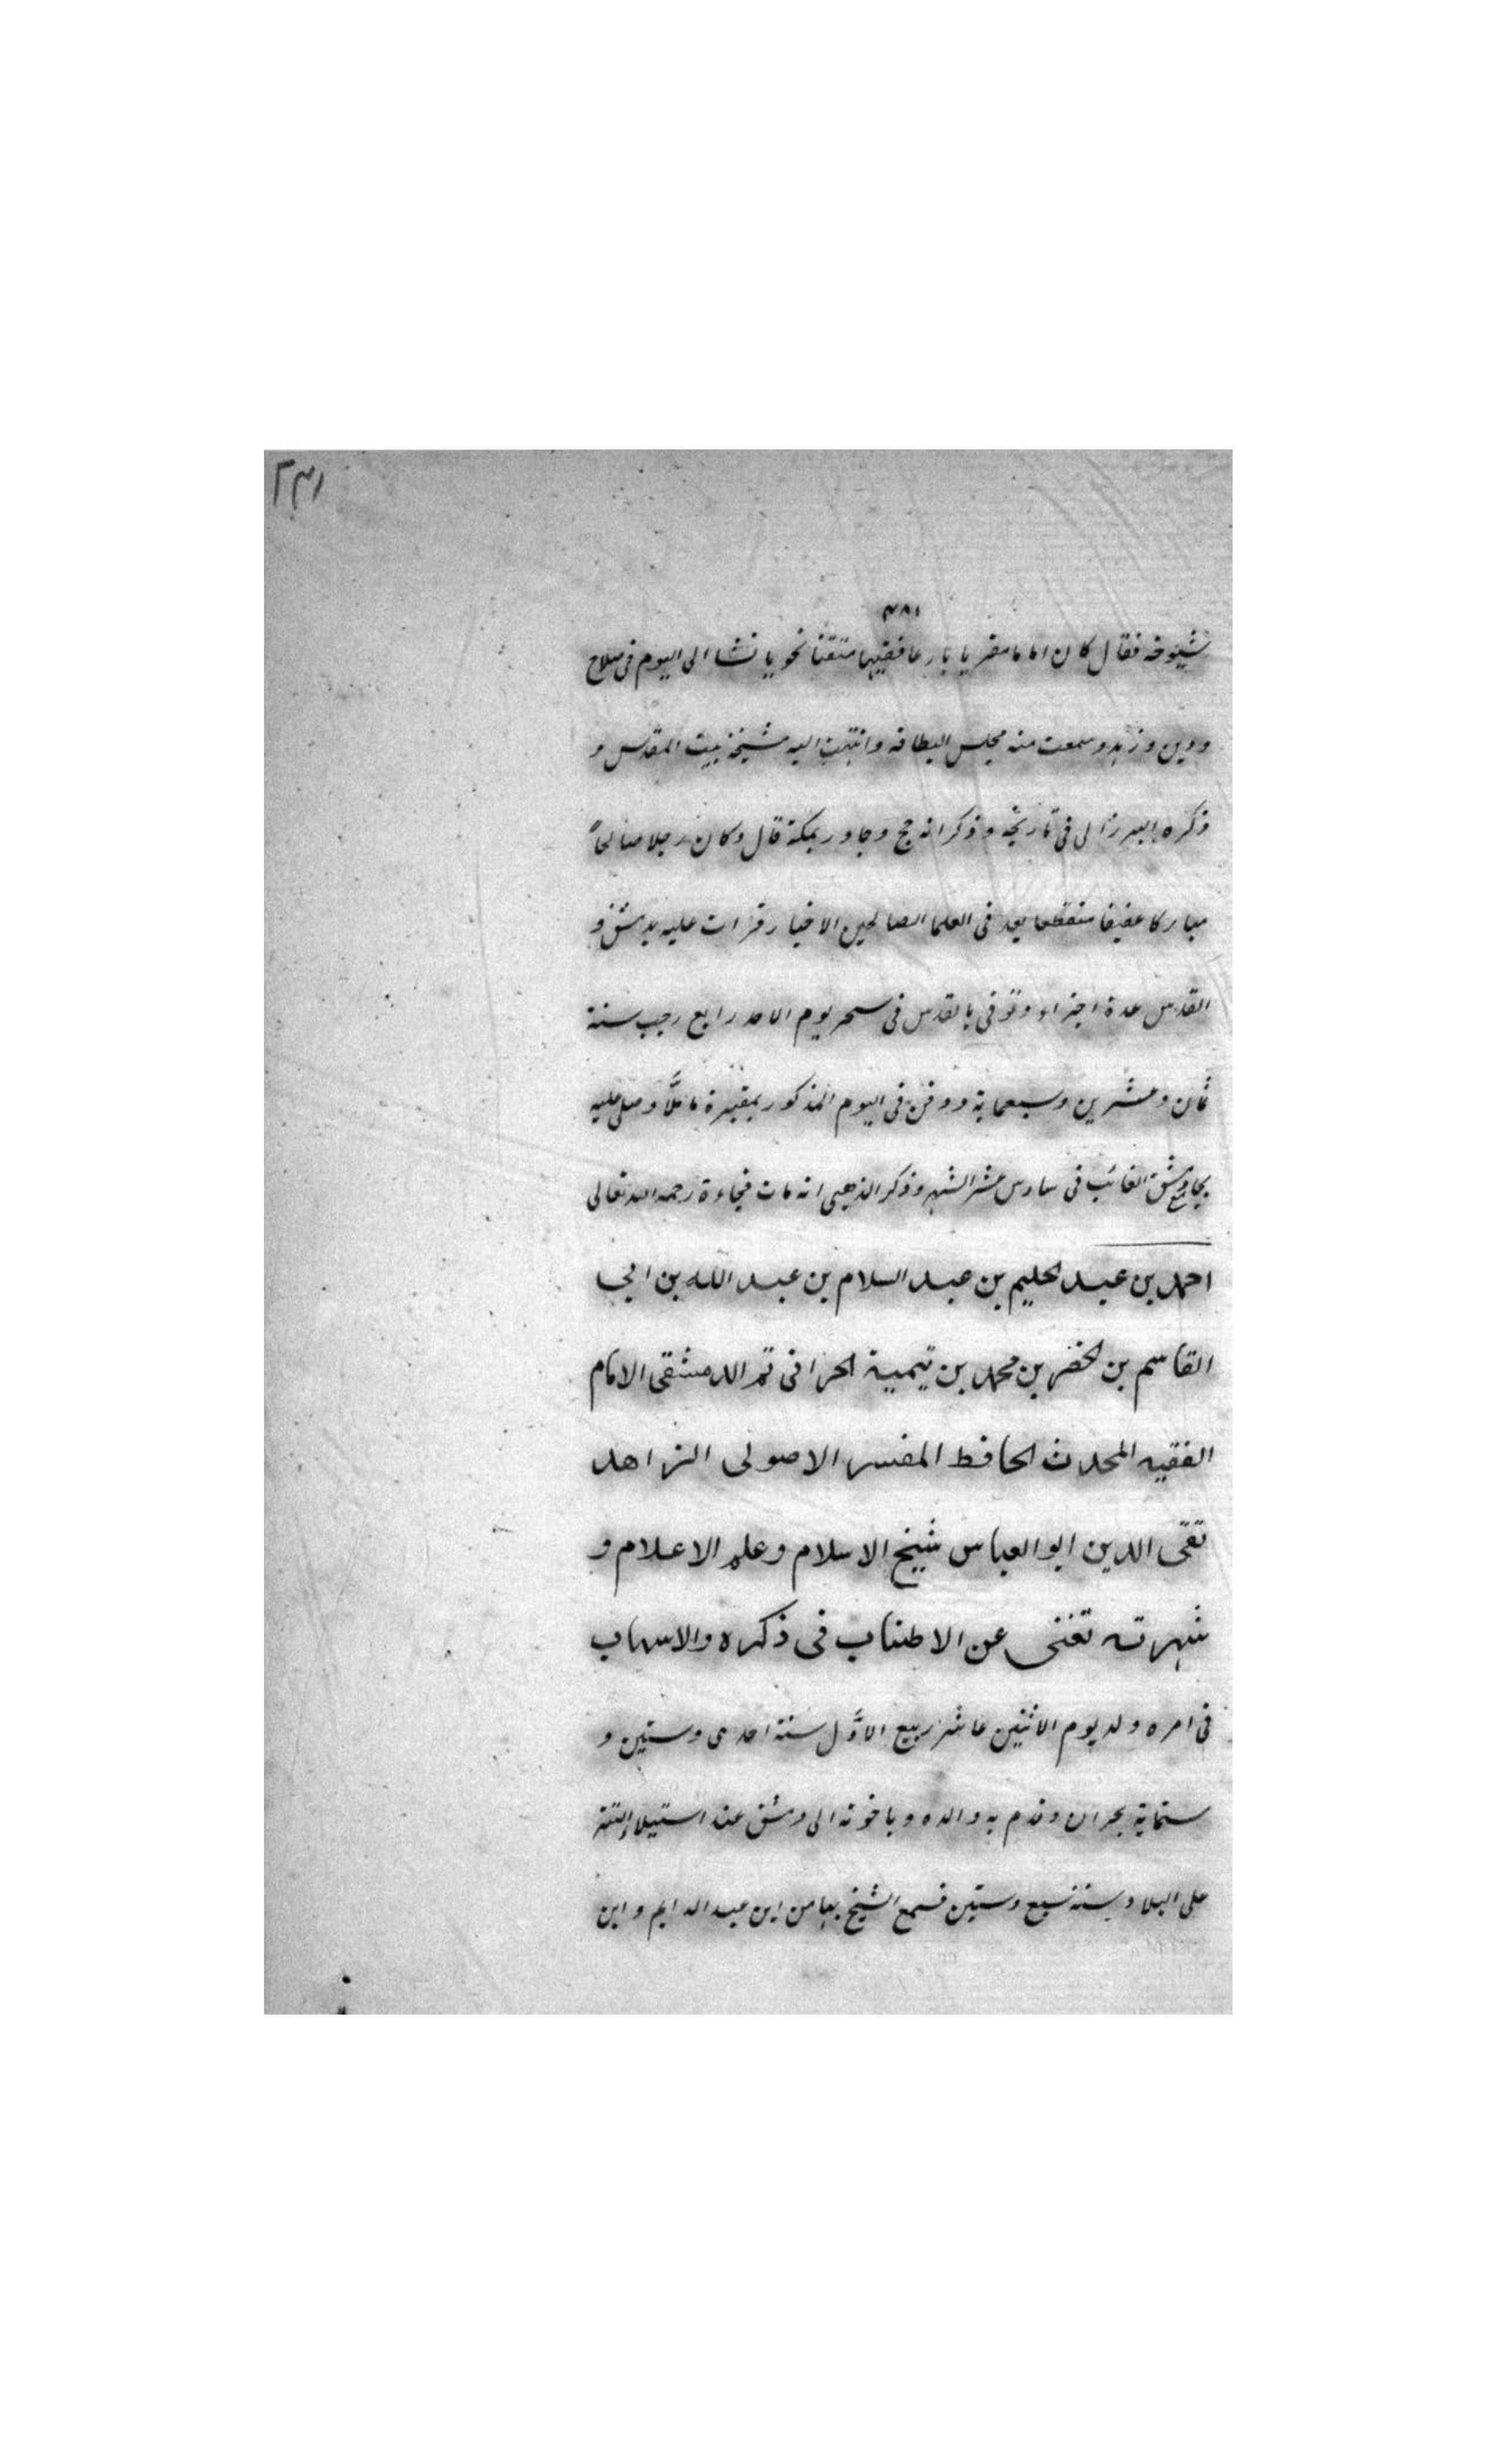 ٢٣١
٤٨١
شيوخه فقال كان اماما مقريا بارعا فقيها متقنا نحويا نشا الى اليوم فى صلاح
ودين وزهد وسمعت منه مجلس البطاقه وانتهت اليه مشيخة بيت المقدس و
ذكره البرزالى فى تاريخه وذكر انه حج وجاور بمكة قال وكان رجلا صالحاً
مباركا عفيفا منقطعا يعد فى العلما الصالحين الاخيار قرات عليه بدمشق و
القدس عدة اجزاء وتوفى بالقدس فى سحر يوم الاحد رابع رجب سنة
ثمان وعشرين وسبعماية ودفن فى اليوم المذكور بمقبرة ماملَّا وصلى عليه
بجامع دمشق الغائب فى سادس عشر الشهر وذكر الذهبى انه مات فجاءة رحمه الله تعالى
احمد بن عبد الحليم بن عبد السلام بن عبد الله بن ابى
القاسم بن الخضر بن محمد بن تيمية الحرانى ثم الدمشقى الامام
الفقيه المحدث الحافظ المفسر الاصولى الزاهد
تقى الدين ابو العباس شيخ الاسلام وعلم الاعلام و
شهرته تغنى عن الاطناب فى ذكره والاسهاب
فى امره ولد يوم الاثنين عاشر ربيع الاوَّل سنة احدى وستين و
ستماية بحران وقدم به والده وباخوته الى دمشق عند استيلاء التتر
على البلاد سنة سبع وستين فسمع الشيخ بها من ابن عبد الدايم وابن